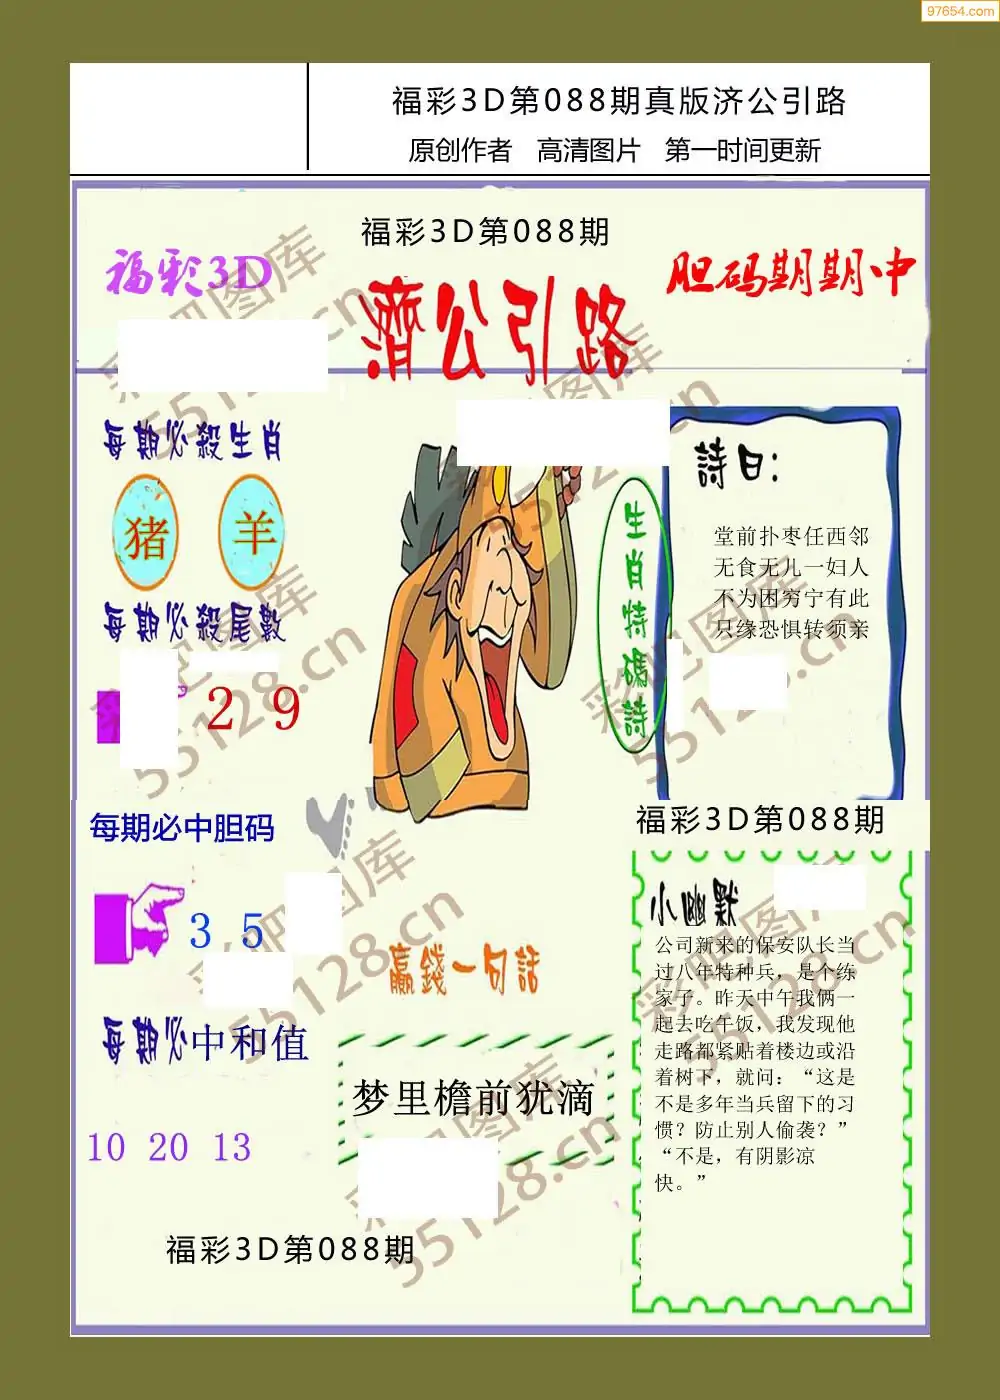 97654.com
福彩3D第088期真版济公引路
原创作者 高清图片 第一时间更新
福彩3D第088期
福彩3D
胆码期期中
濟公引路
每期必殺生肖
猪 羊
每期必殺尾數
2 9
每期必中胆码
3 5
每期必中和值
10 20 13
福彩3D第088期
生肖特碼詩
詩曰:
堂前扑枣任西邻
无食无儿一妇人
不为困穷宁有此
只缘恐惧转须亲
福彩3D第088期
小幽默
公司新来的保安队长当
过八年特种兵，是个练
家子。昨天中午我俩一
起去吃午饭，我发现他
走路都紧贴着楼边或沿
着树下，就问：“这是
不是多年当兵留下的习
惯？防止别人偷袭？”
“不是，有阴影凉
快。”
赢錢一句話
梦里檐前犹滴
彩吧图库
55128.cn
彩吧图库
55128.cn
彩吧图库
55128.cn
彩吧图库
55128.cn
彩吧图库
55128.cn
彩吧图库
55128.cn
彩吧图库
55128.cn